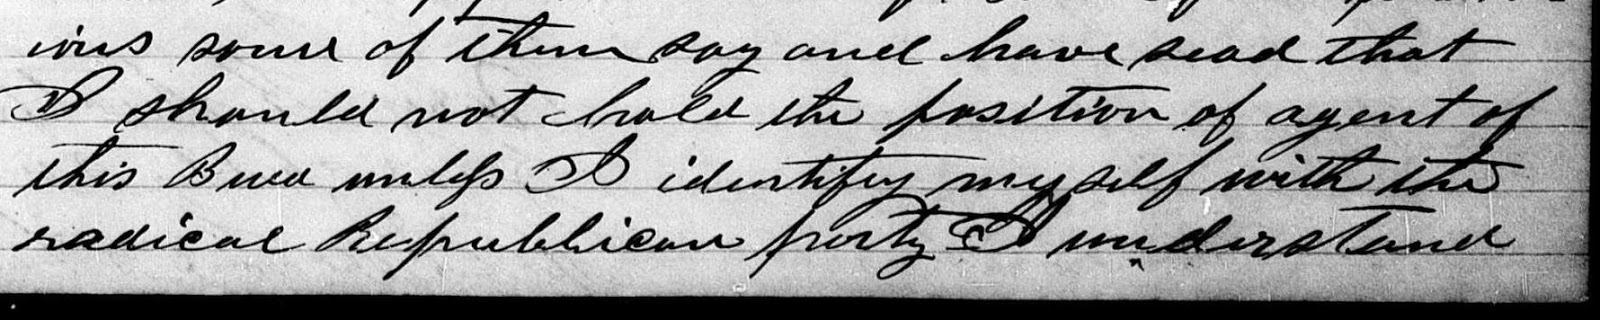 ious some of them say and have sead that
I should not hold the position of agent of
this Buea unless I identify my self with the
radical Republican party I understand